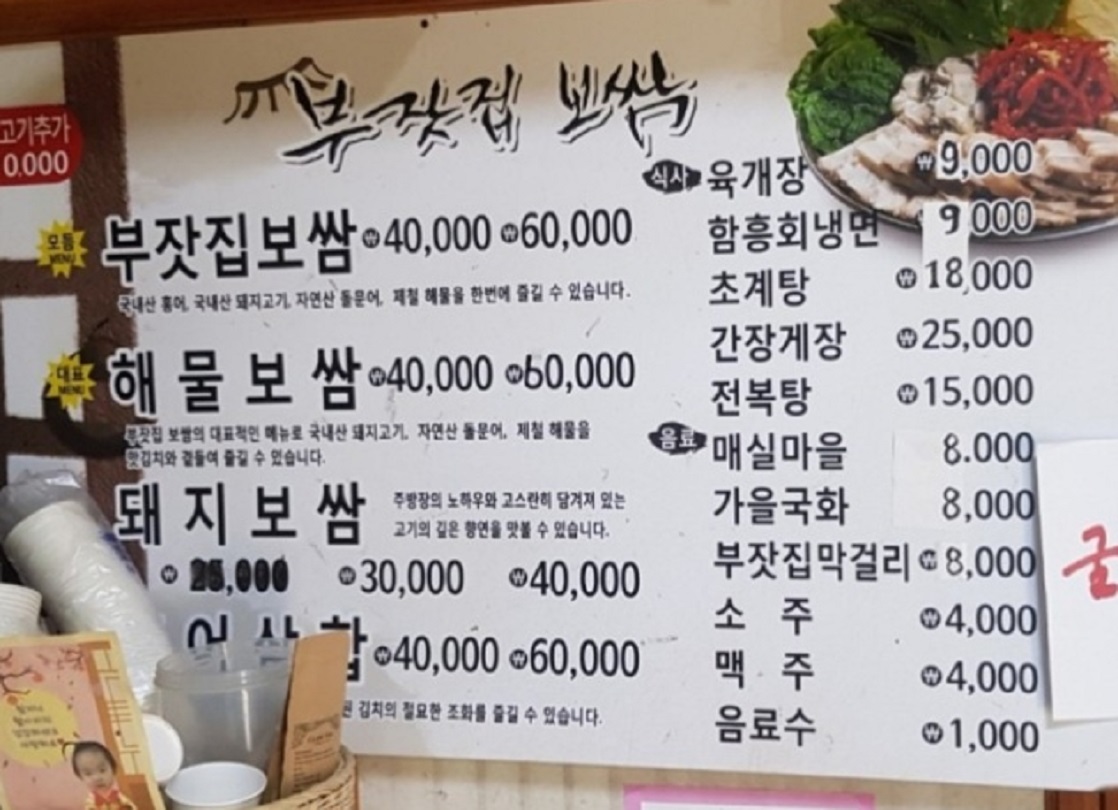 부잣집 보쌈
고기추가
0.000
모듬 MENU
부잣집보쌈 ₩40,000 ₩60,000
국내산 홍어, 국내산 돼지고기, 자연산 돌문어, 제철 해물을 한번에 즐길 수 있습니다.
대표 MENU
해물보쌈 ₩40,000 ₩60,000
부잣집 보쌈의 대표적인 메뉴로 국내산 돼지고기, 자연산 돌문어, 제철 해물을
맛김치와 곁들여 즐길 수 있습니다.
돼지보쌈
주방장의 노하우와 고스란히 담겨져 있는
고기의 깊은 향연을 맛볼 수 있습니다.
₩25,000 ₩30,000 ₩40,000
₩40,000 ₩60,000
김치의 절묘한 조화를 즐길 수 있습니다.
식사 육개장 ₩9,000
함흥회냉면 9,000
초계탕 ₩18,000
간장게장 ₩25,000
전복탕 ₩15,000
음료 매실마을 8.000
가을국화 8,000
부잣집막걸리 ₩8,000
소 주 ₩4,000
맥 주 ₩4,000
음료수 ₩1,000
굴